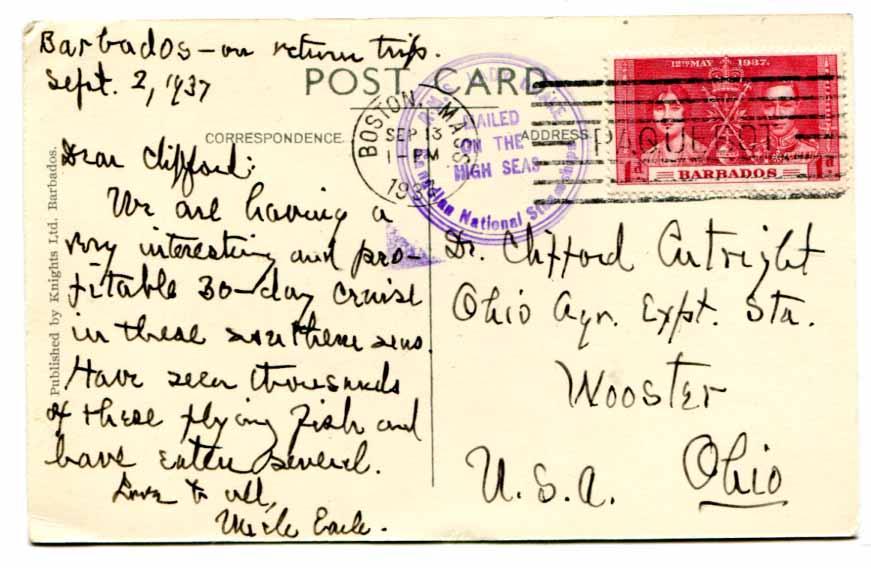 Barbados — on return trip.
Sept. 2, 1937
POST CARD
CORRESPONDENCE.
ADDRESS.
Dear Clifford:
We are having a
very interesting and pro-
fitable 30-day cruise
in these southern seas.
Have seen thousands
of these flying fish and
have eaten several.
Love to all,
Uncle Earle.
Published by Knights Ltd. Barbados.
BOSTON, MASS
SEP 13
1 - PM
MAILED
ON THE
HIGH SEAS
Canadian National Steamships
PAQUEBOT
12TH MAY 1937.
1D BARBADOS 1D
Dr. Clifford Cutright
Ohio Agr. Expt. Sta.
Wooster
Ohio
U.S.A.